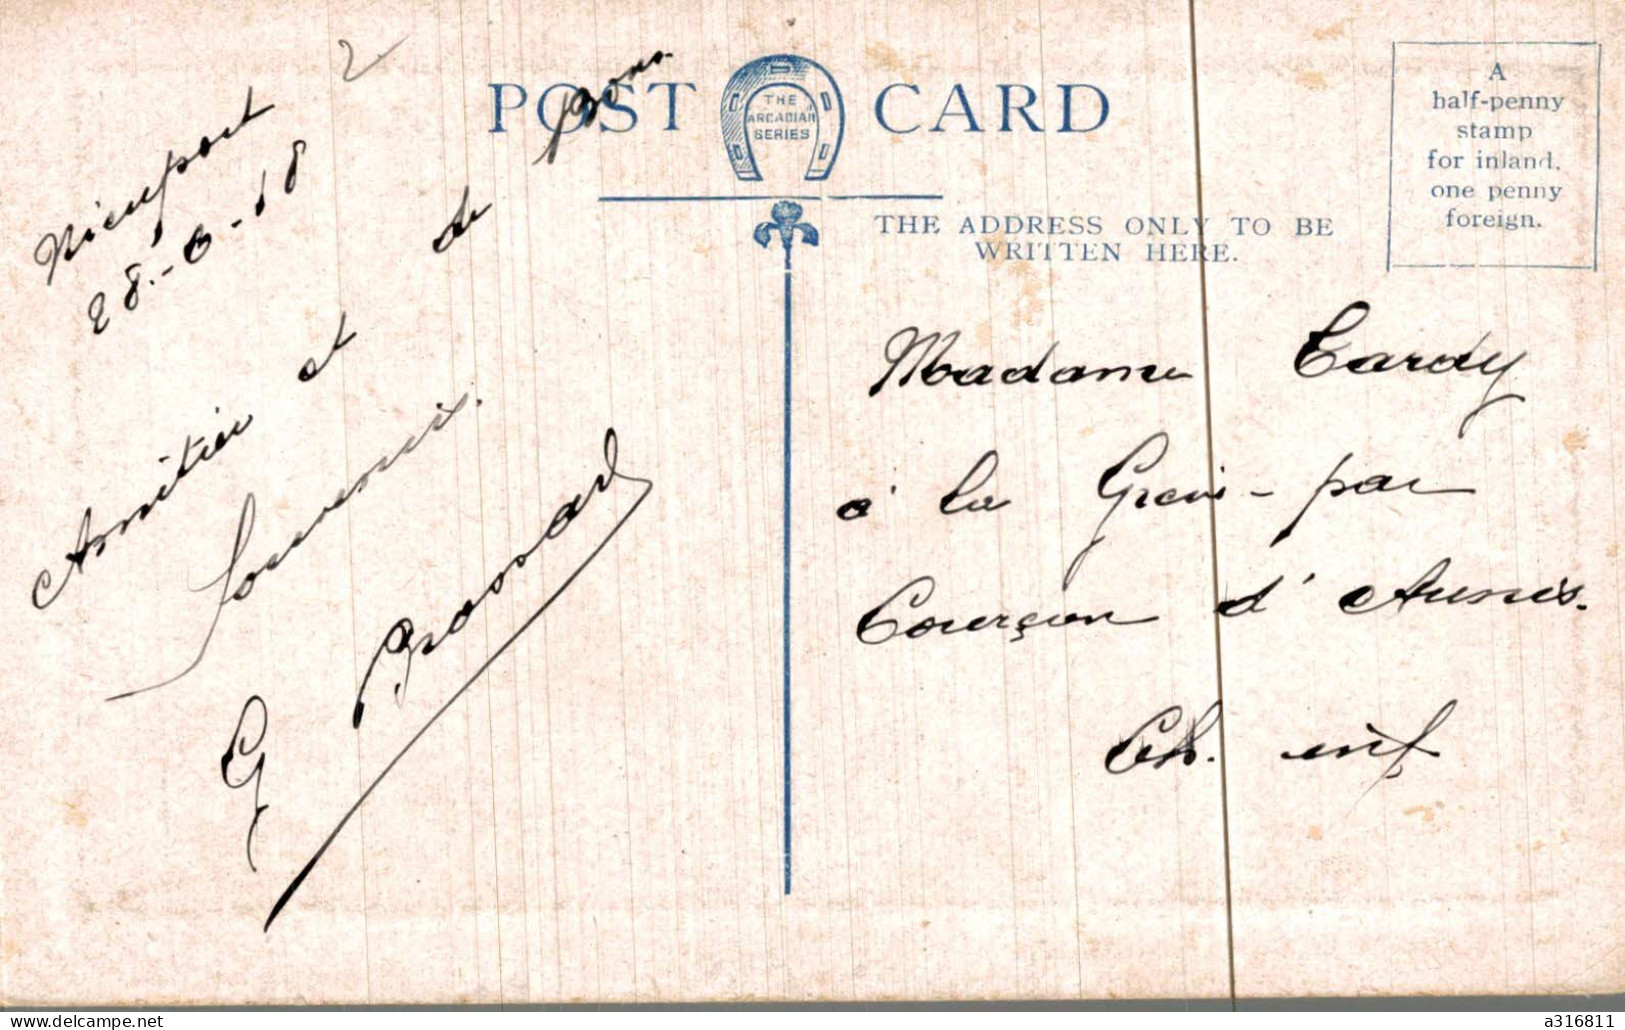 2
Nieuport
28-6-18
Amitiés et de Bons
Souvenirs.
G
POST CARD
THE
ARCADIAN
SERIES
A
half-penny
stamp
for inland.
one penny
foreign.
THE ADDRESS ONLY TO BE
WRITTEN HERE.
Madame Tardy
à la Grève - par
Courçon d'Aunis.
Ch. inf
Delcampe.net
a316811